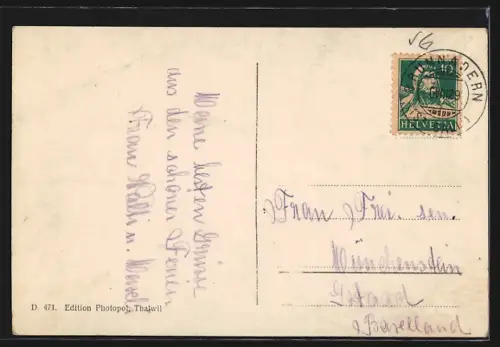 Meine besten Grüsse
aus den schönen Ferien
Frau
D. 471. Edition Photopol, Thalwil
56
10
HELVETIA
BRUNNADERN
Frau Frei. sen.
Münchenstein
Gstaad
Baselland